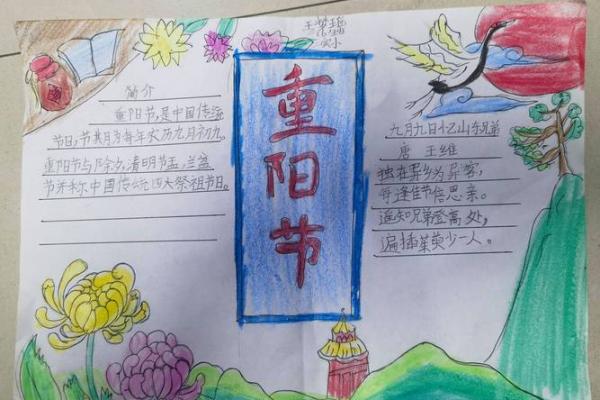 重阳节
简介
重阳节,是中国传统
节日,节其月为每年农历九月初九。
重阳节与除夕,清明节,盂兰盆
节并称中国传统四大祭祖节日。
九月九日忆山东兄弟
唐 王维
独在异乡为异客,
每逢佳节倍思亲。
遥知兄弟登高处,
遍插茱萸少一人。